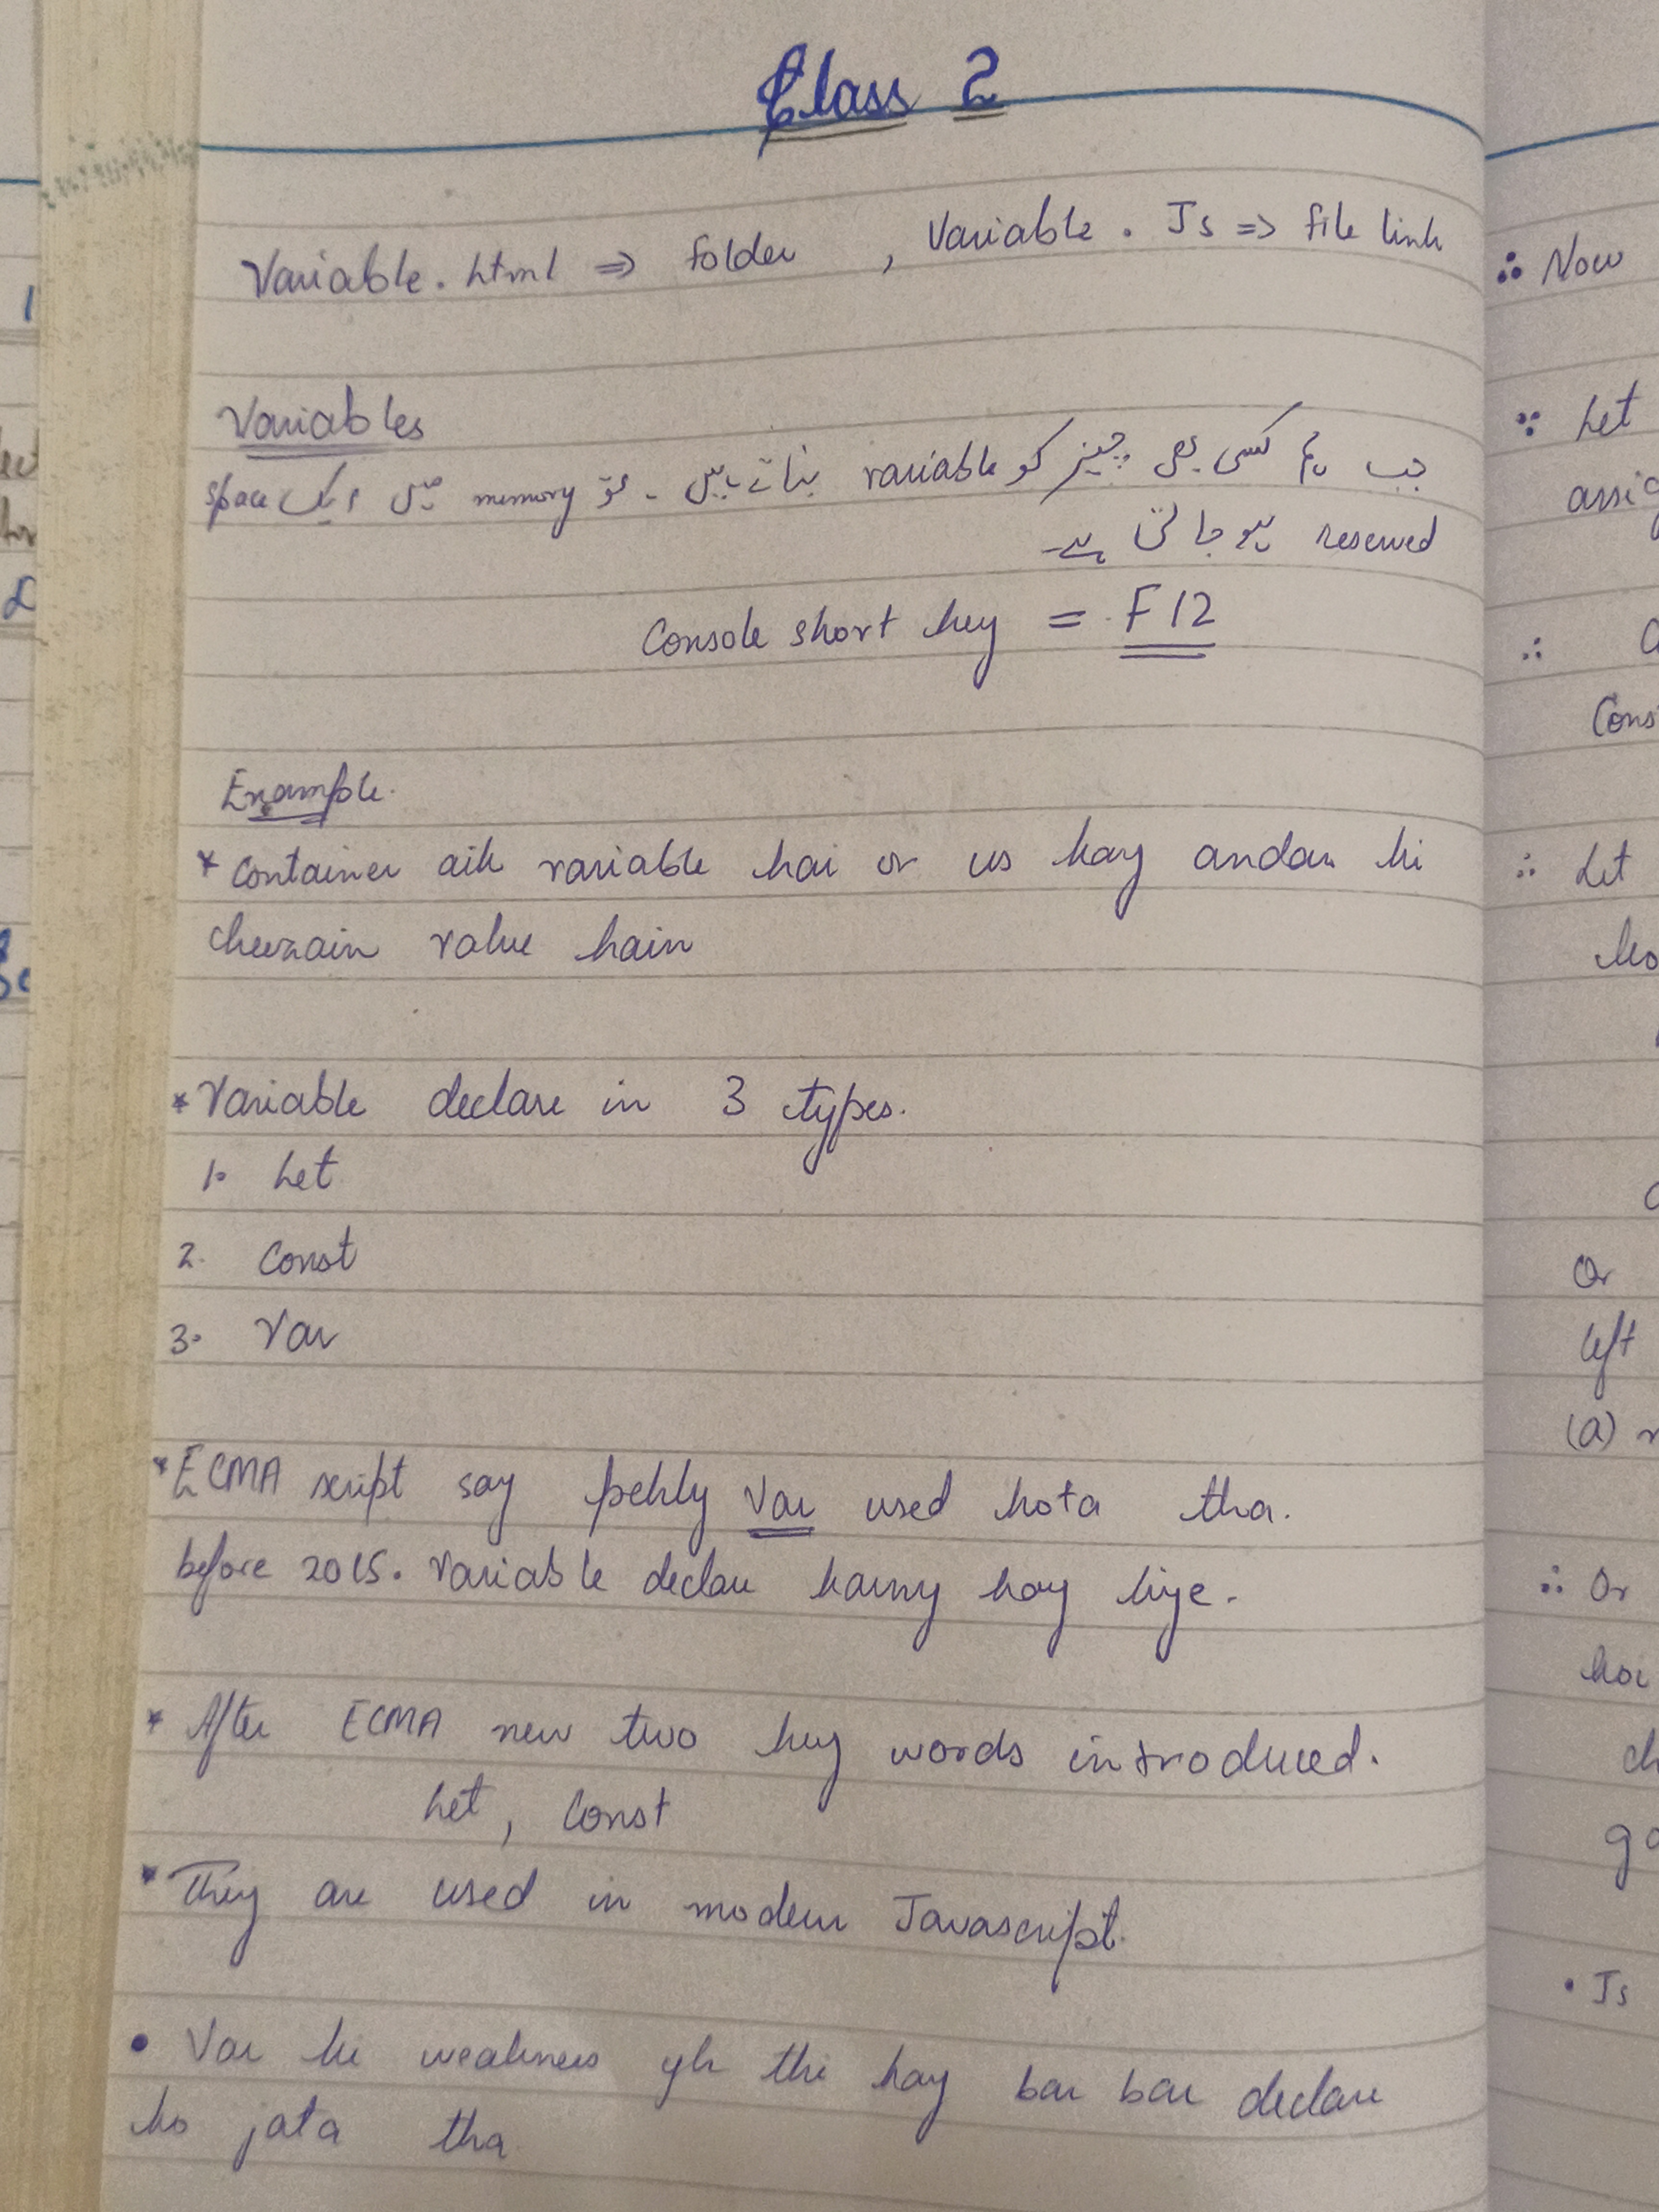 Class 2
Variable.html => folder , Variable.Js => file link
Variables
جب ہم کسی بھی چیز کو variable بناتے ہیں ۔ تو memory میں ایک space
reserved ہو جاتی ہے۔
Console short key = F12
Example.
* Container aik variable hai or us kay andar ki
cheezain value hain
* Variable declare in 3 types.
1. Let
2. Const
3. Var
* ECMA script say pehly Var used hota tha.
before 2015. Variable declare karny kay liye.
* After ECMA new two key words introduced.
Let, Const
* They are used in modern Javascript.
• Var ki weakness yh thi kay bar bar declare
ho jata tha
∴ Now
∵ Let
∴
∴ Let
Or
left
(a)
∴ Or
hai
• Js